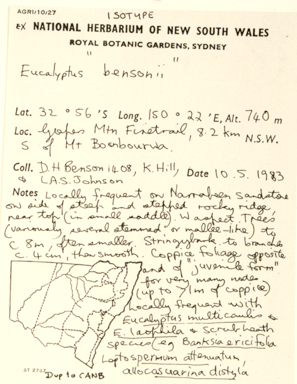 AGRI/10/27
ISOTYPE
ex NATIONAL HERBARIUM OF NEW SOUTH WALES
ROYAL BOTANIC GARDENS, SYDNEY
" "
Eucalyptus bensonii
Lat. 32° 56 'S Long. 150° 22 'E, Alt. 740 m
Loc. Gospers Mtn Firetrail, 8.2 km N.S.W.
S of Mt Boonbourwa.
Coll. D.H Benson 1408, K. Hill, Date 10. 5. 1983
& L.A.S. Johnson
Notes Locally frequent on Narrabeen sandstone
on side of steep and stepped rocky ridge
near top (in small saddle). W aspect. Trees
(variously, several stemmed or mallee-like) to
c. 8m, often smaller. Stringybark to branches
c. 4 cm, then smooth. Coppice foliage opposite
and of "juvenile form"
for very many nodes
(up to 7/m of coppice)
Locally frequent with
Eucalyptus multicaulis &
E. laophila & scrub heath
species (eg Banksia ericifolia
Leptospermum attenuatum,
allocasuarina distyla
Dup to CANB